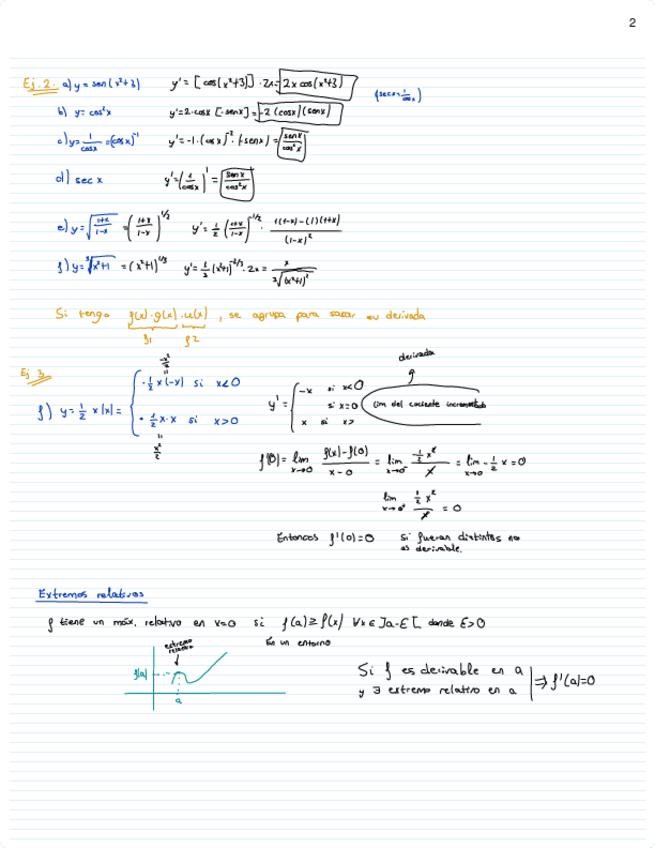 2
Ej. 2. a) y = sen(x²+3) y' = [cos(x²+3)] · 2x = 2x cos(x²+3)
(sec x = 1/cos x)
b) y = cos²x y' = 2·cos x [-sen x] = -2(cos x)(sen x)
c) y = 1/cos x = (cos x)⁻¹ y' = -1·(cos x)⁻²·(-sen x) = sen x/cos²x
d) sec x y' = (1/cos x)' = sen x/cos²x
e) y = √((1+x)/(1-x)) = ((1+x)/(1-x))^(1/2) y' = 1/2 ((1+x)/(1-x))^(-1/2) · (1(1-x)-(1)(1+x))/(1-x)²
f) y = ³√(x²+1) = (x²+1)^(1/3) y' = 1/3 (x²+1)^(-2/3) · 2x = x/³√(x²+1)²
Si tengo f(x)·g(x)·u(x), se agrupa para sacar su derivada
f1 f2
Ej 3
derivada
-x²/2
=
f) y = 1/2 x|x| = { · 1/2 x(-x) si x<0
· 1/2 x·x si x>0
=
x²/2
y' = { -x si x<0
si x=0 (Lim del cociente incrementado
x si x>
f'(0) = lim x→0 (f(x)-f(0))/(x-0) = lim x→0⁻ (-1/2 x²)/x = lim x→0 -1/2 x = 0
lim x→0⁺ (1/2 x²)/x = 0
Entonces f'(0)=0 Si fueran distintos no
es derivable.
Extremos relativos
f tiene un máx. relativo en x=0 si f(a) ≥ f(x) ∀x ∈ ]a-E[ donde E>0
En un entorno
extremo
relativo
f(a)
a
Si f es derivable en a
y ∃ extremo relativo en a | ⇒ f'(a)=0